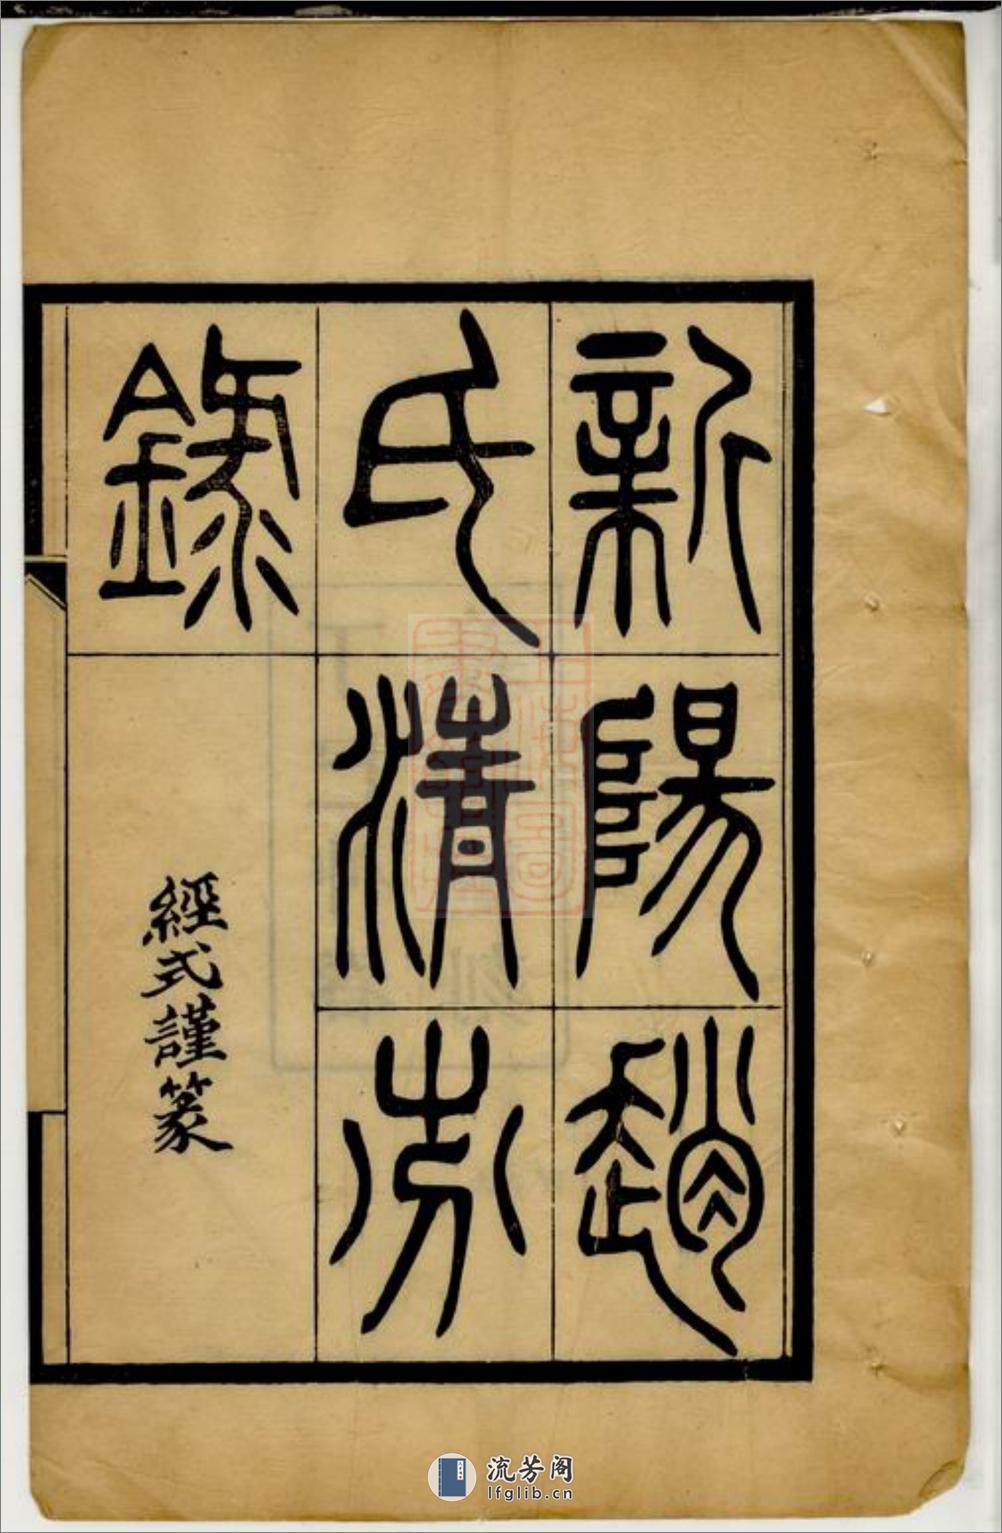 新陽趙
氏清芬
錄
經式謹篆
流芳阁
lfglib.cn